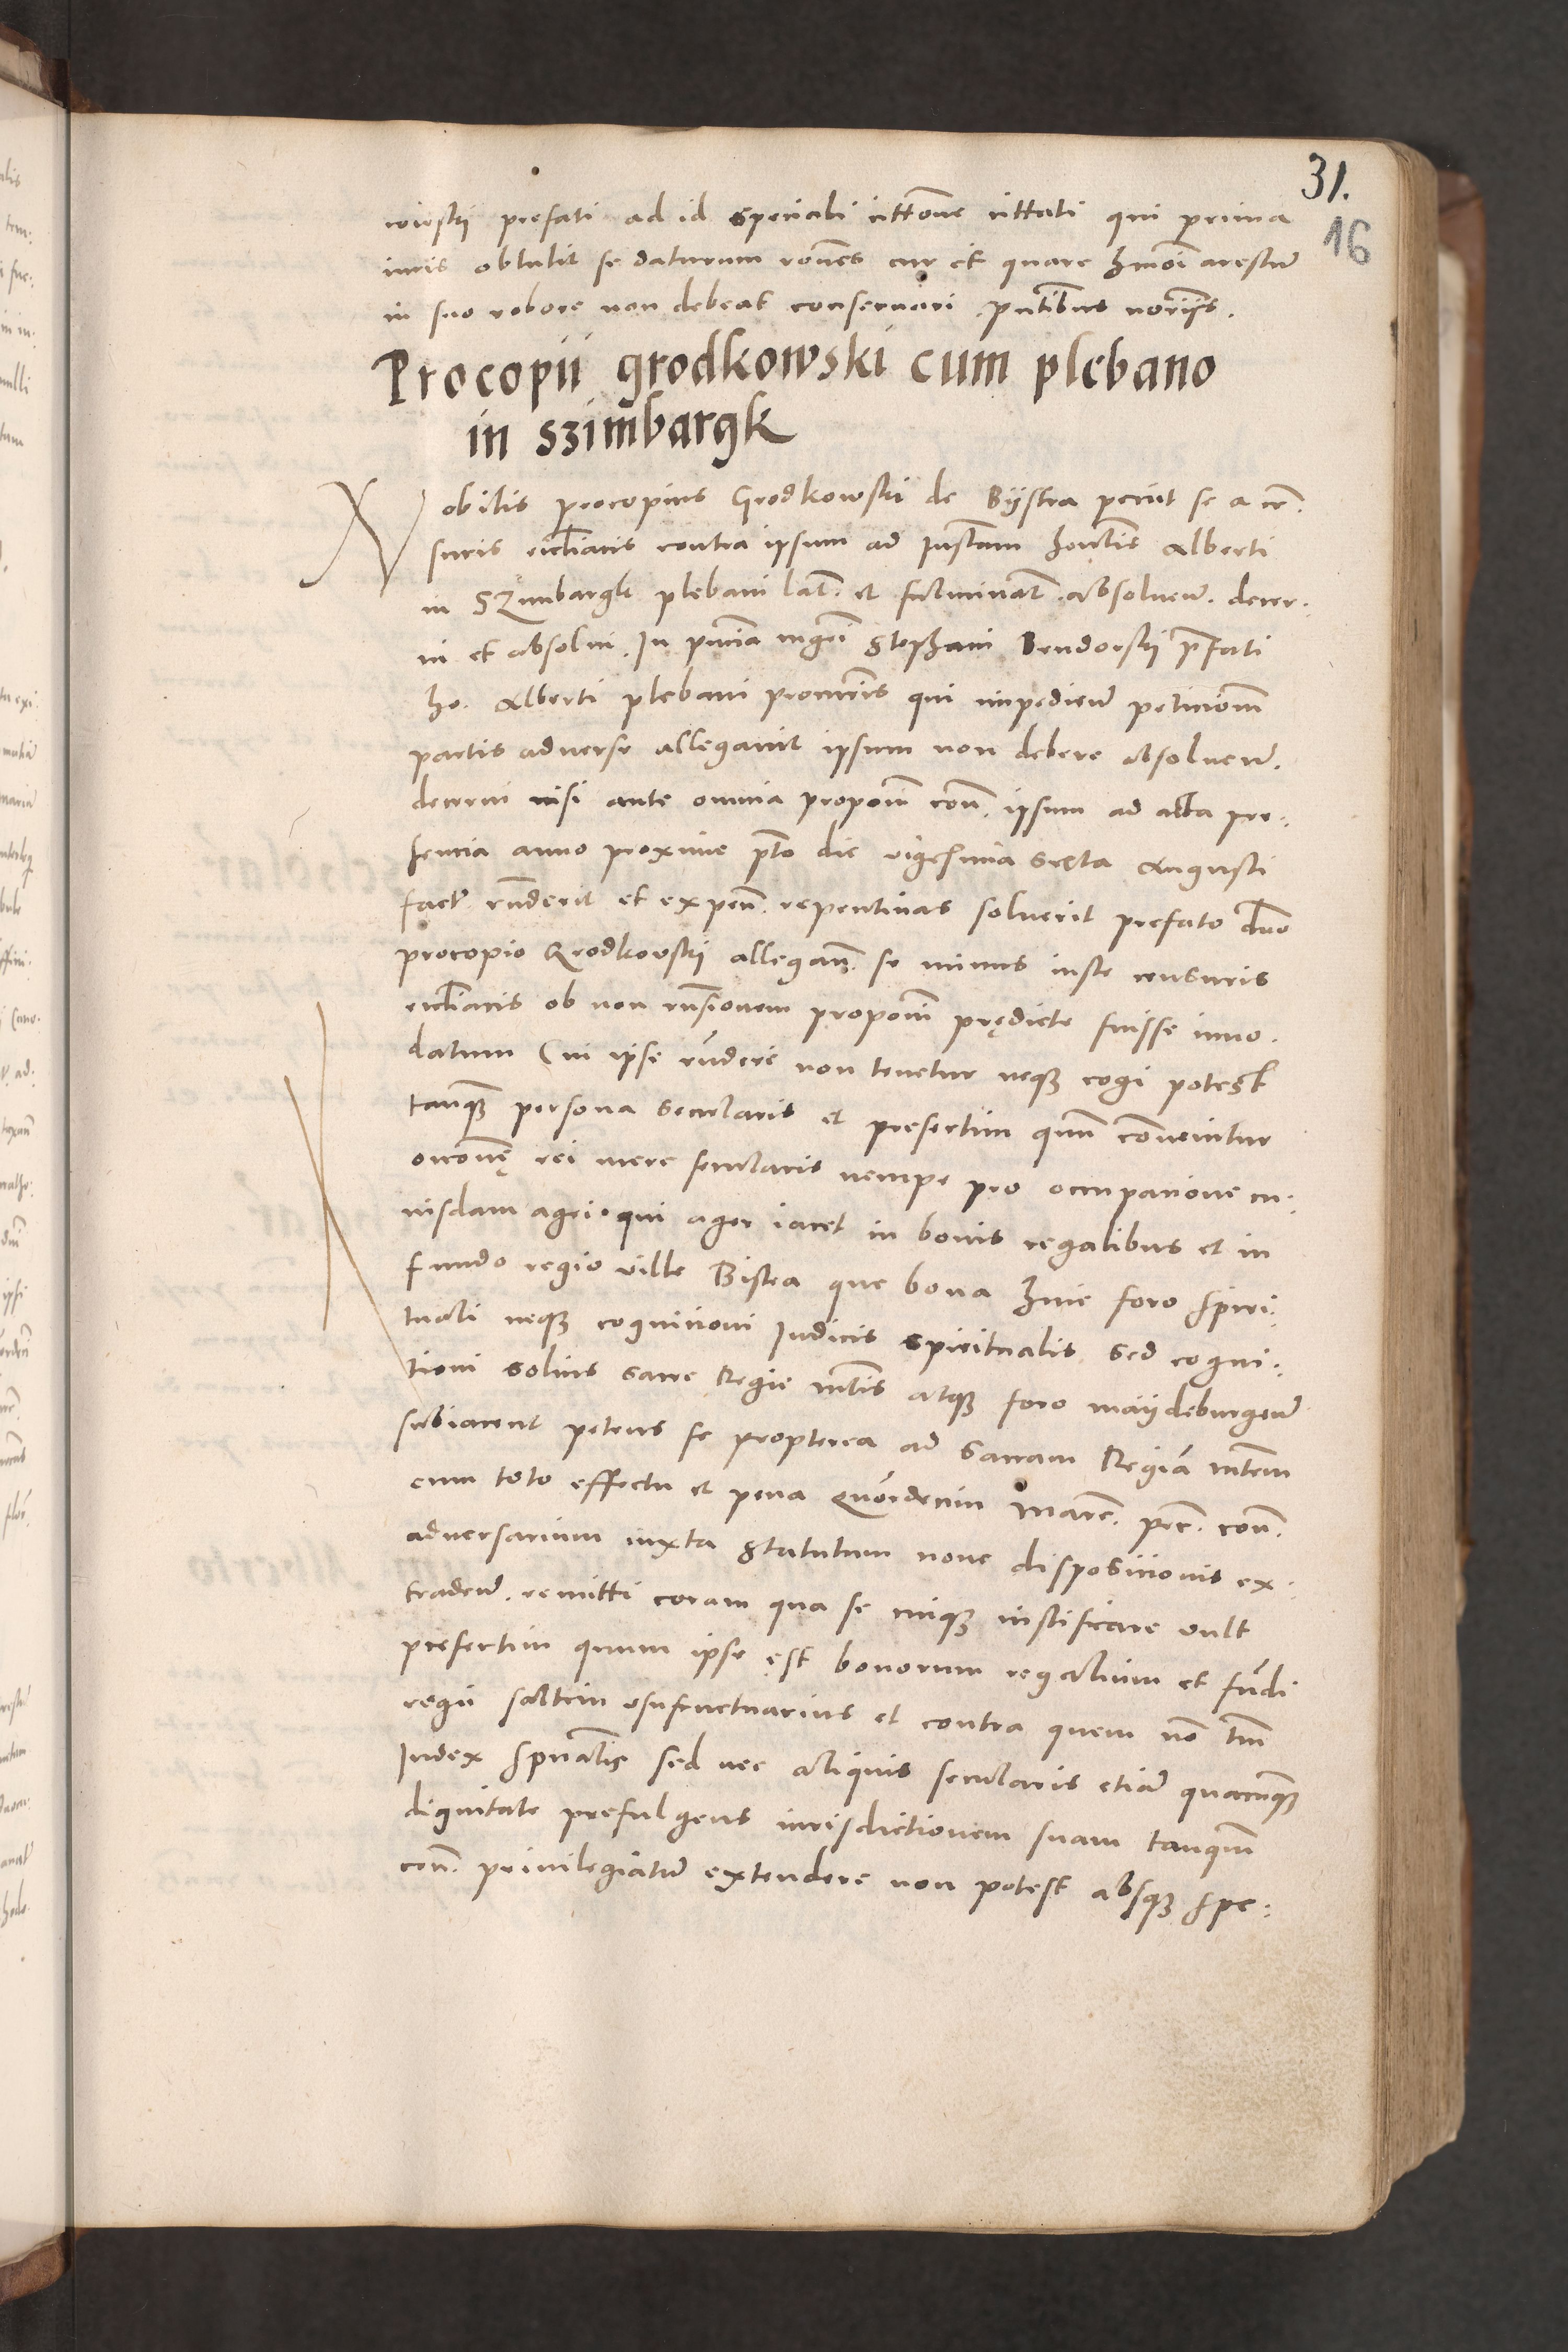 31.
16
wĳskÿ prefati ad id speciali citt̃one cittati qui prima
iuris obtulit se daturum rones cur et quare hm̃oi arestũ
in suo robore non debeat conservari. pñtibus notarĳs.
Procopii grodkowski cum plebano
in szimbargk
Nobilis procopius Grodkowskÿ de Bÿstra petiit se a cẽ:
suris ecclïacis contra ipsum ad Instam honor̃lis Alberti
in SZimbargk plebani lat̃. et fulminat̃. absolven̄. decer:
ni et absolvi. In pñcia mgri Stephani Bendorskÿ prefati
ho. Alberti plebani procuris qui impedien̄ peticionem
partis adverse allegavit ipsum non debere absolven̄.
decerni nisi ante omnia propoñi coñ. ipsum ad acta pre:
sencia anno proxime pt̃o die vigesima sexta Augusti
factẽ rñderit et expeñ. repentinas solverit prefato dño
procopio Grodkowskÿ allegañ. se minus iuste censuris
ecclïacis ob non rñsionem propoñi prędicte fuisse inno:
datum Cui ipse rñdere non tenetur neqꝫ cogi potest
tanqꝫ persona secularis et presertim quum convenitur
occoñę rei mere secularis nempe pro occupacione cu:
iusdam agri. qui ager iacet in bonis regalibus et in
fundo regio ville Bistra que bona huic foro spiri:
tuali neqꝫ cognicioni Iudicis spiritualis sed cogni:
tioni solius sacre Regie mt̃tis atqꝫ foro maÿdeburgeñ
subiacent petens se propterea ad sacram Regiã mt̃tem
cum toto effectu et pena quĩdecim marc̃. pec̃. coñ.
adversarium iuxta statutum nove disposicionis ex:
tradeñ. remitti coram qua se cuiqꝫ iustificare vult
presertim quum ipse est bonorum regalium et fũdi
regii saltem usufructuarius et contra quem nõ tm̃
Iudex spũalis sed nec aliquis secularis etiã quacũqꝫ
dignitate prefulgens iurisdictionem suam tanquã
coñ. privilegiatũ extendere non potest absqꝫ spe: